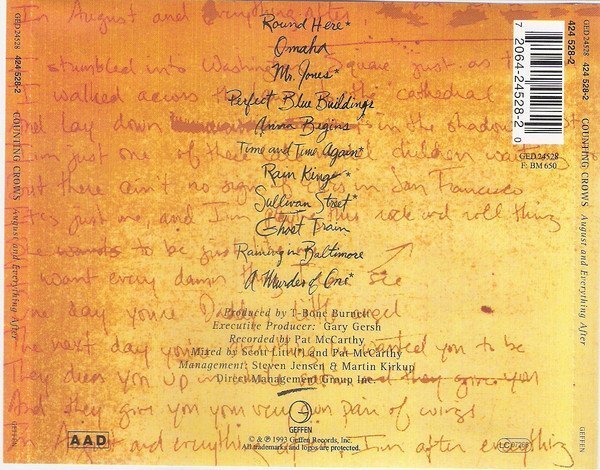 GED 24528 424 528-2 COUNTING CROWS August and Everything After GED 24528
In August and everything after
I stumbled into Washington Square just as
I walked across the cathedral
lay down in the shadows
just one of these children
there ain't no sign of in San Francisco
just me, and I'm this rock and roll thing
to be just
want every damn thing I see
one day you're Daddy's little angel
The next day you're wanted you to be
They dress you up in they give you
And they give you your very own pair of wings
In August and everything after I'm after everything
Round Here*
Omaha
Mr. Jones*
Perfect Blue Buildings
Anna Begins
Time and Time Again*
Rain King*
Sullivan Street*
Ghost Train
Raining in Baltimore
A Murder of One*
Produced by T-Bone Burnett
Executive Producer: Gary Gersh
Recorded by Pat McCarthy
Mixed by Scott Litt (*) and Pat McCarthy
Management: Steven Jensen & Martin Kirkup
Direct Management Group Inc.
GEFFEN
© & ℗ 1993 Geffen Records, Inc.
All trademarks and logos are protected.
AAD
7 2064-24528-2 0
GED 24528
F: BM 650
LC 7266
GED 24528 424 528-2 COUNTING CROWS August and Everything After GEFFEN
424 528-2